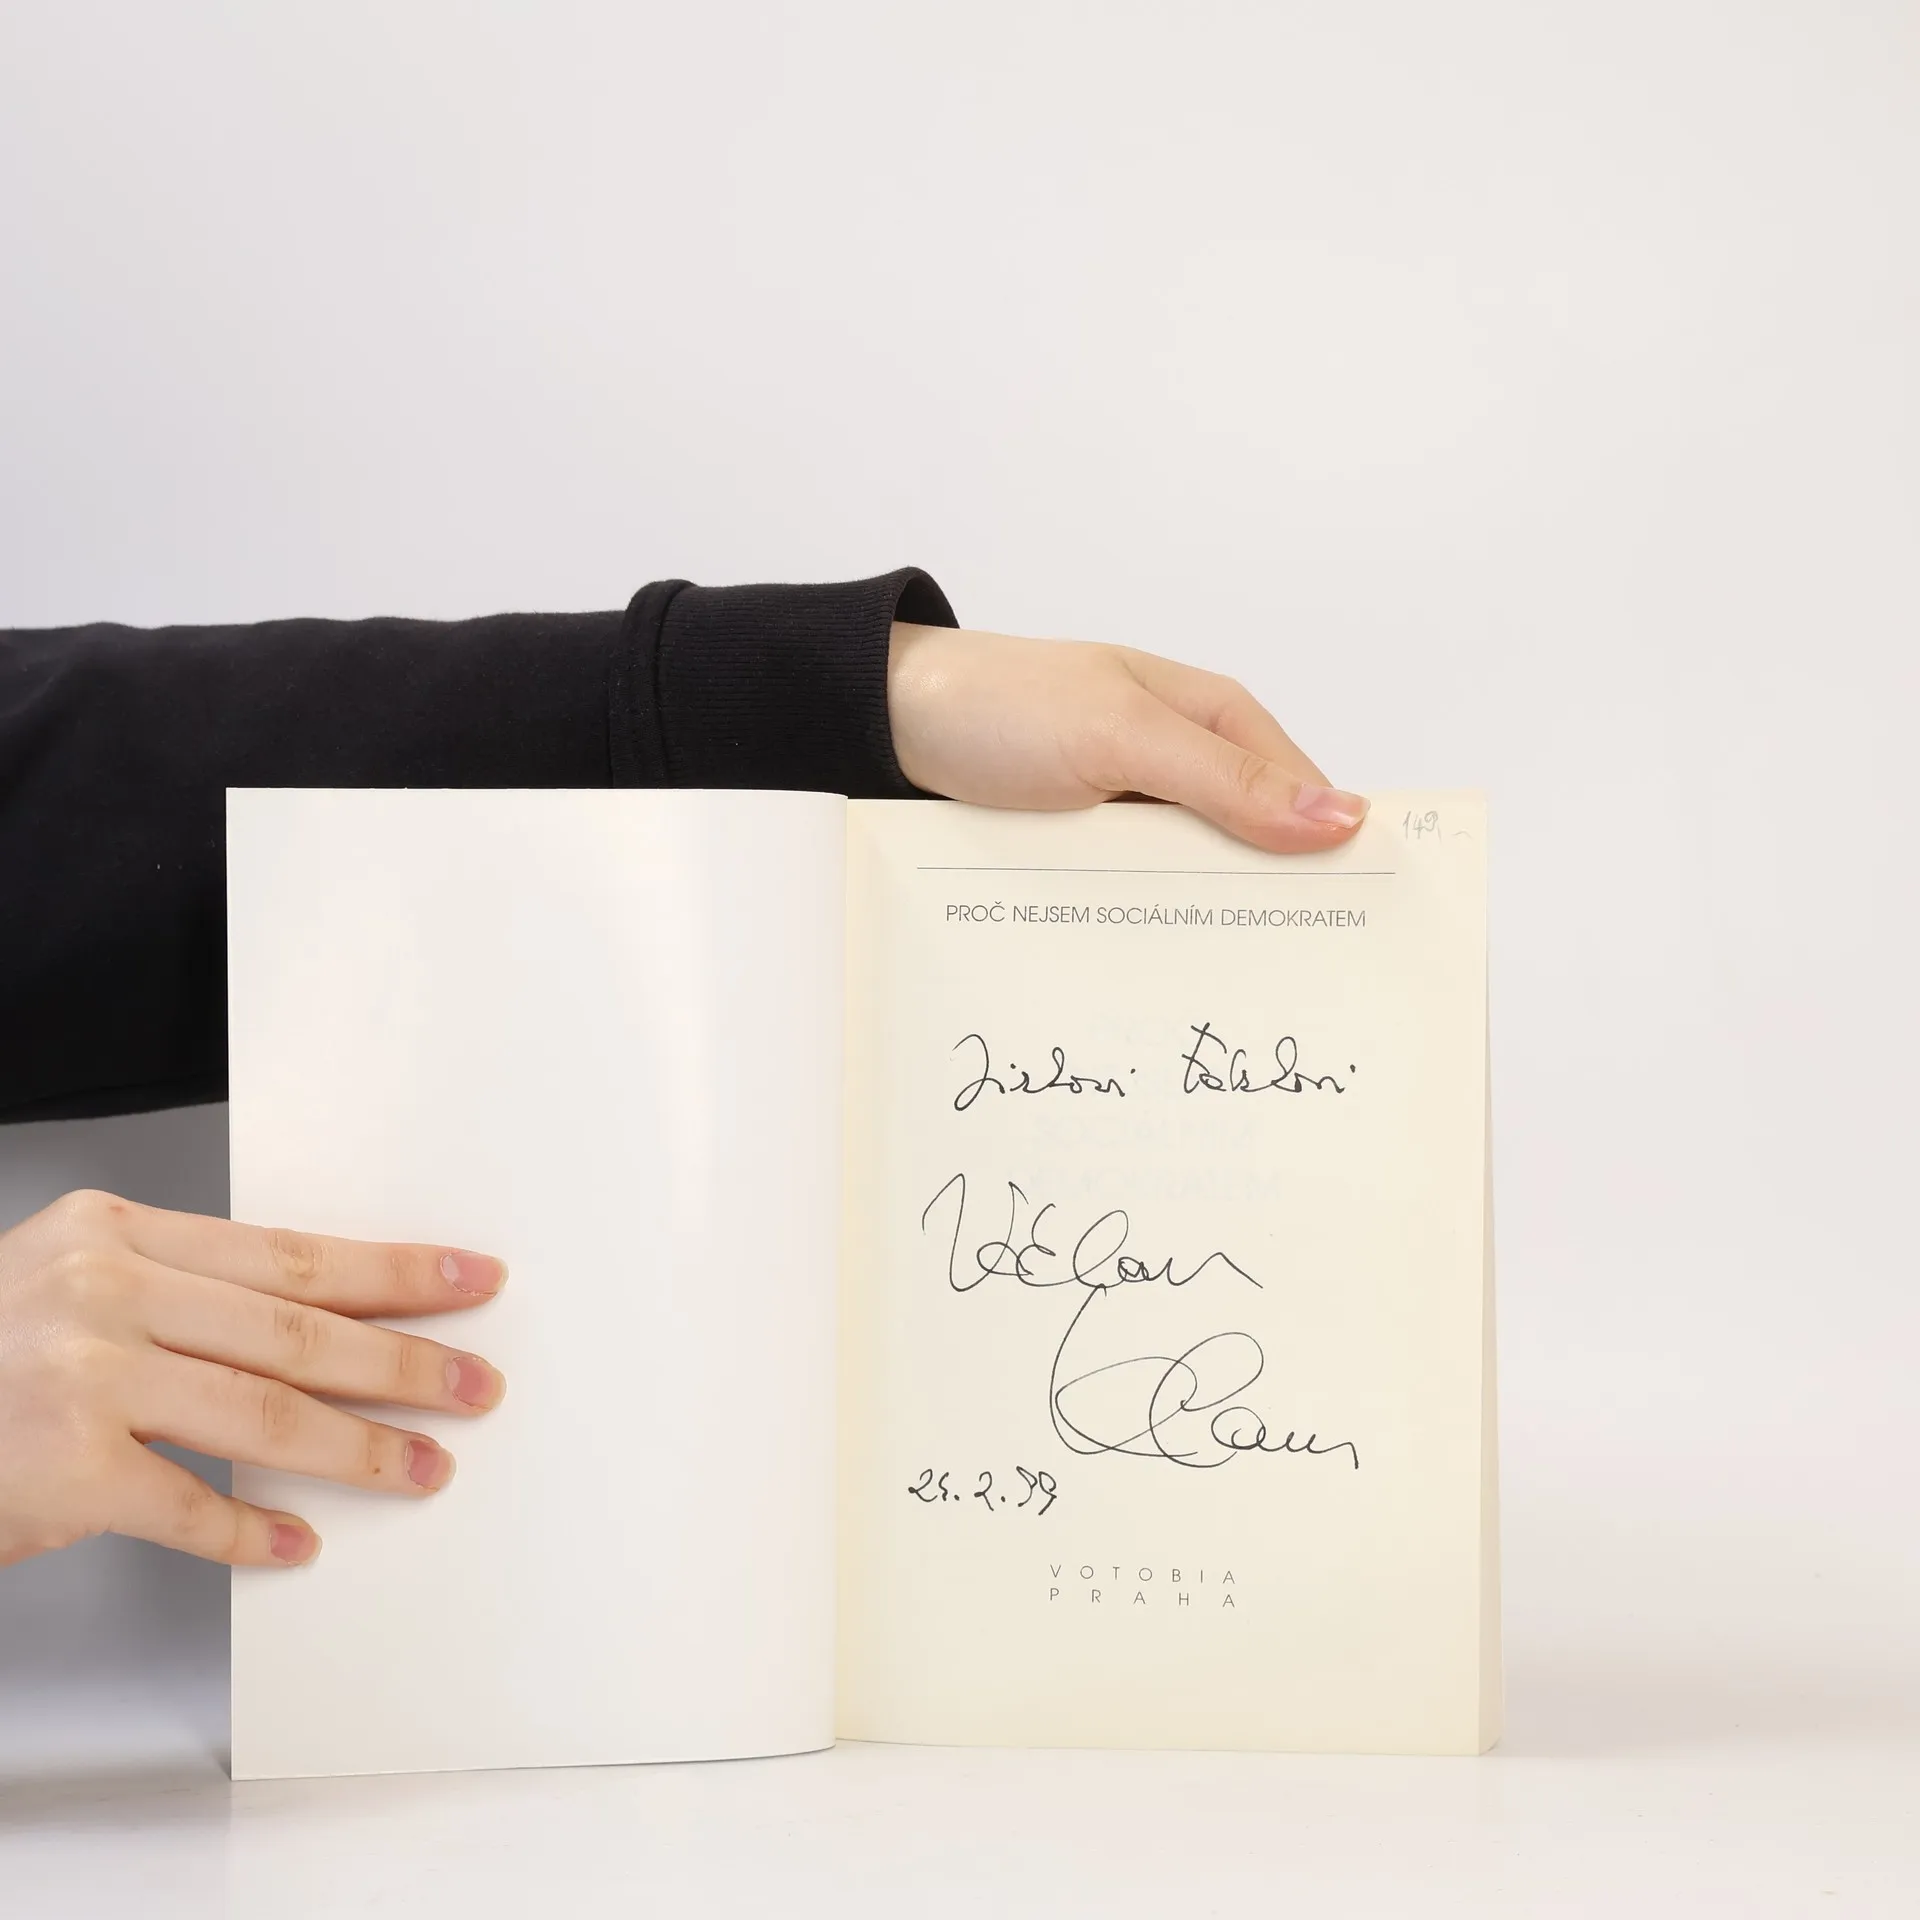 149,-
PROČ NEJSEM SOCIÁLNÍM DEMOKRATEM
Václav
Klaus
25.2.99
VOTOBIA
PRAHA